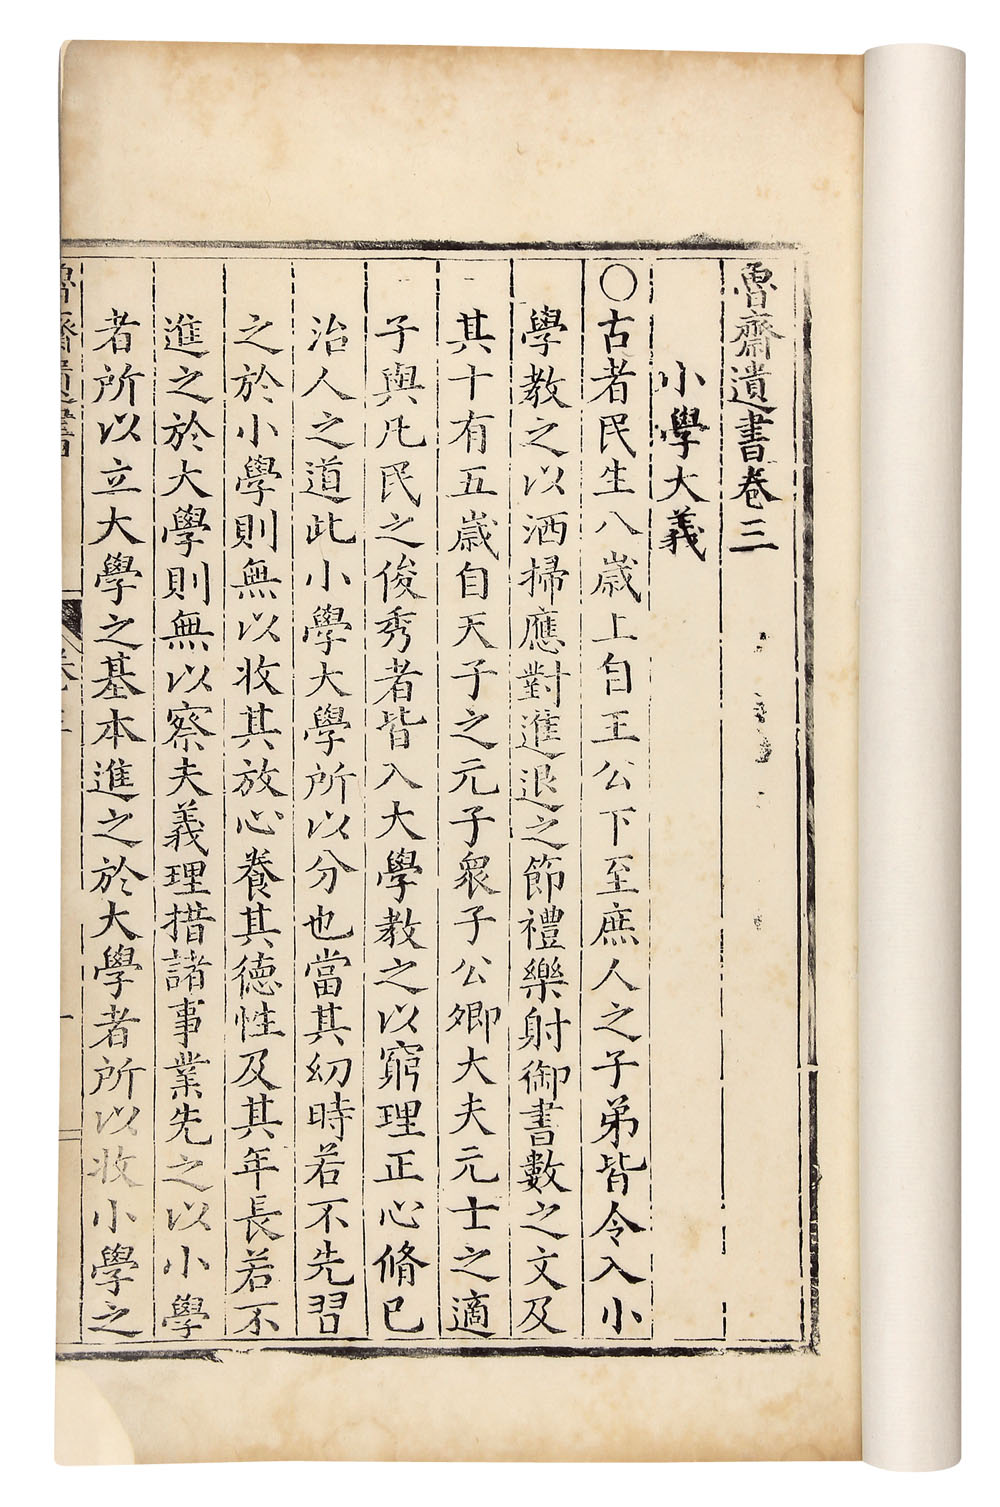 魯齋遺書卷三
小學大義
○古者民生八歲上自王公下至庶人之子弟皆令入小
學教之以洒掃應對進退之節禮樂射御書數之文及
其十有五歲自天子之元子衆子公卿大夫元士之適
子與凡民之俊秀者皆入大學教之以窮理正心脩己
治人之道此小學大學所以分也當其幼時若不先習
之於小學則無以收其放心養其德性及其年長若不
進之於大學則無以察夫義理措諸事業先之以小學
者所以立大學之基本進之於大學者所以收小學之
魯齋遺書 卷三 一